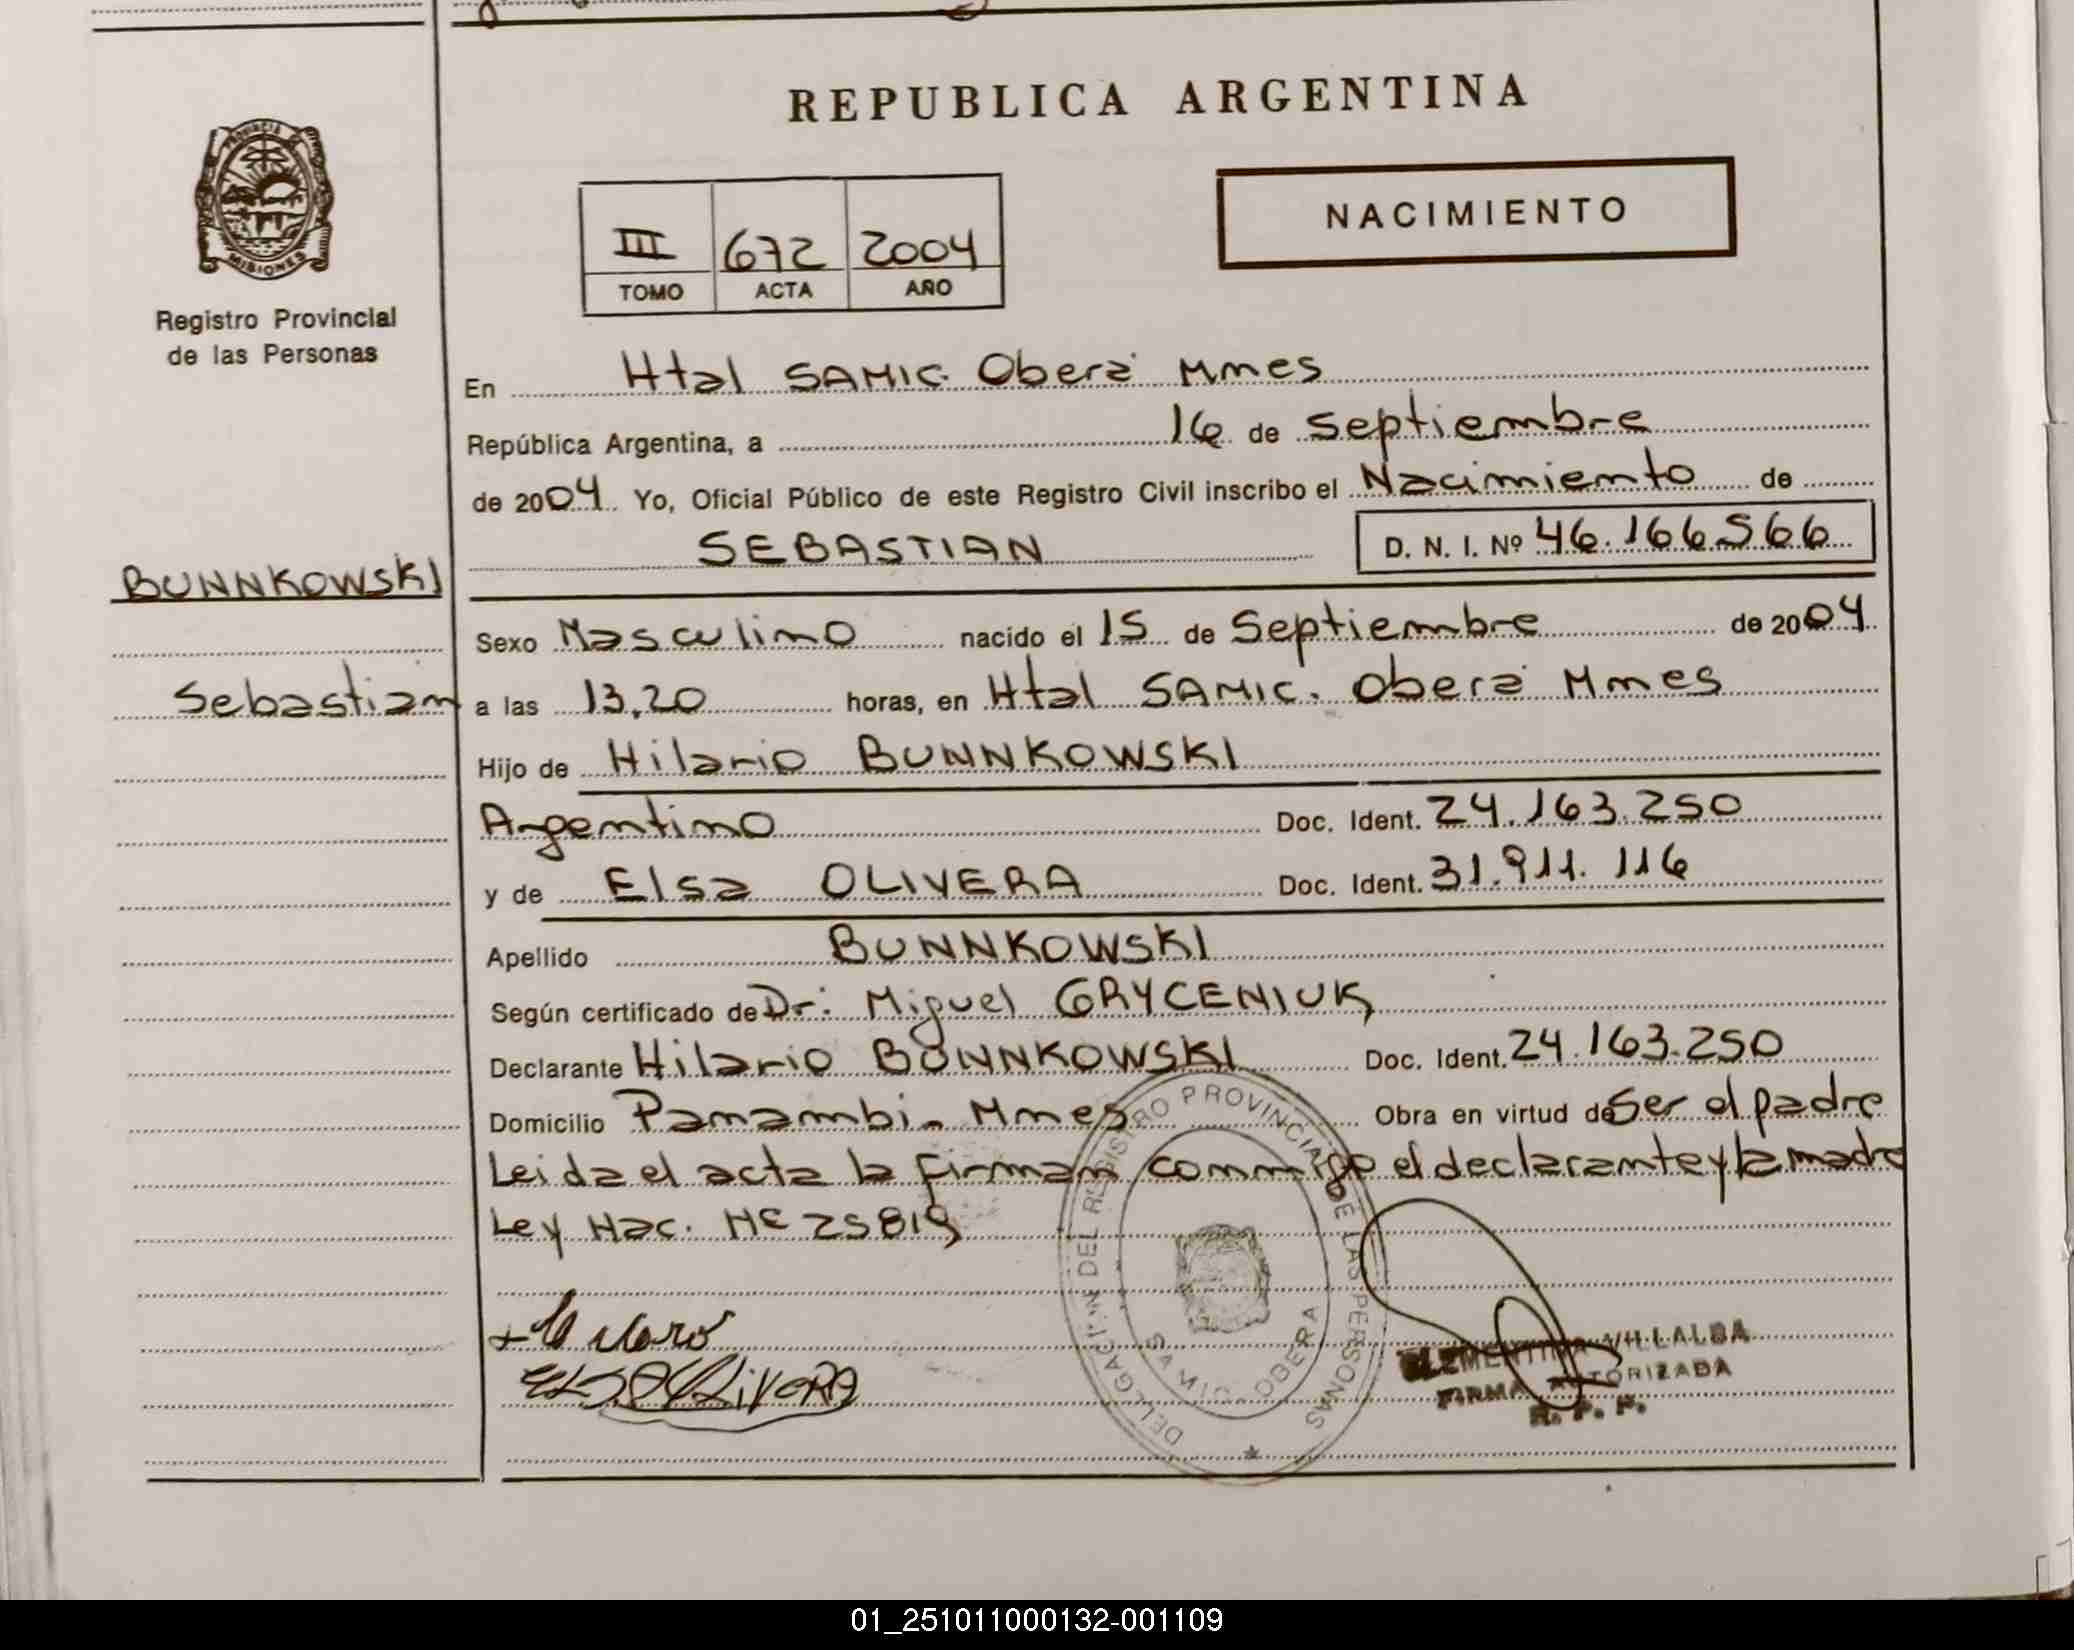 REPUBLICA ARGENTINA
PROVINCIA DE
MISIONES
Registro Provincial
de las Personas
III 672 2004
TOMO ACTA AÑO
NACIMIENTO
En Htal SAMIC. Oberá Mnes
República Argentina, a 16 de Septiembre
de 2004. Yo, Oficial Público de este Registro Civil inscribo el Nacimiento de
SEBASTIAN D. N. I. Nº 46.166.566
BUNNKOWSKI
Sebastian
Sexo Masculino nacido el 15 de Septiembre de 2004
a las 13,20 horas, en Htal SAMIC. Oberá Mnes
Hijo de Hilario BUNNKOWSKI
Argentino Doc. Ident. 24.163.250
y de Elsa OLIVERA Doc. Ident. 31.911.116
Apellido BUNNKOWSKI
Según certificado de Dr: Miguel GRYCENIUK
Declarante Hilario BUNNKOWSKI Doc. Ident. 24.163.250
Domicilio Panambi. Mnes Obra en virtud de Ser el padre
Leida el acta la firman conmigo el declarante y la madre
Ley Nac. Nº 25819
ELSA OLiVERA
DELEGACION DEL REGISTRO PROVINCIAL DE LAS PERSONAS
OBERA
CLEMENTINA VILLALBA
FIRMA AUTORIZADA
R. P. P.
01_251011000132-001109